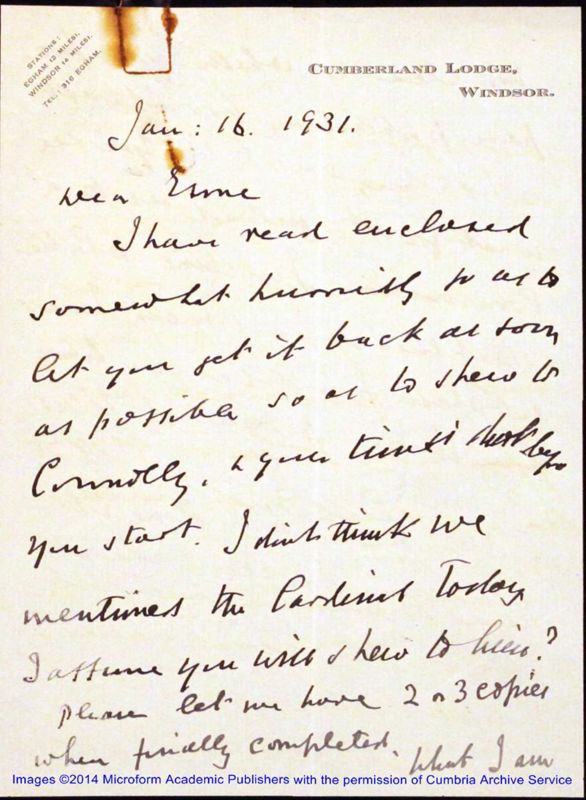 STATIONS:
EGHAM 1½ MILES.
WINDSOR 14 MILES.
TEL: 316 EGHAM.
CUMBERLAND LODGE,
WINDSOR.
Jan: 16. 1931.
Dear Esme
I have read enclosed
somewhat hurriedly so as to
let you get it back as soon
as possible so as to shew to
Connolly, & your time is short before
you start. I don't think we
mentioned the Cardinal today
I assume you will shew to him?
Please let me have 2 or 3 copies
when finally completed. What I am
Images ©2014 Microform Academic Publishers with the permission of Cumbria Archive Service